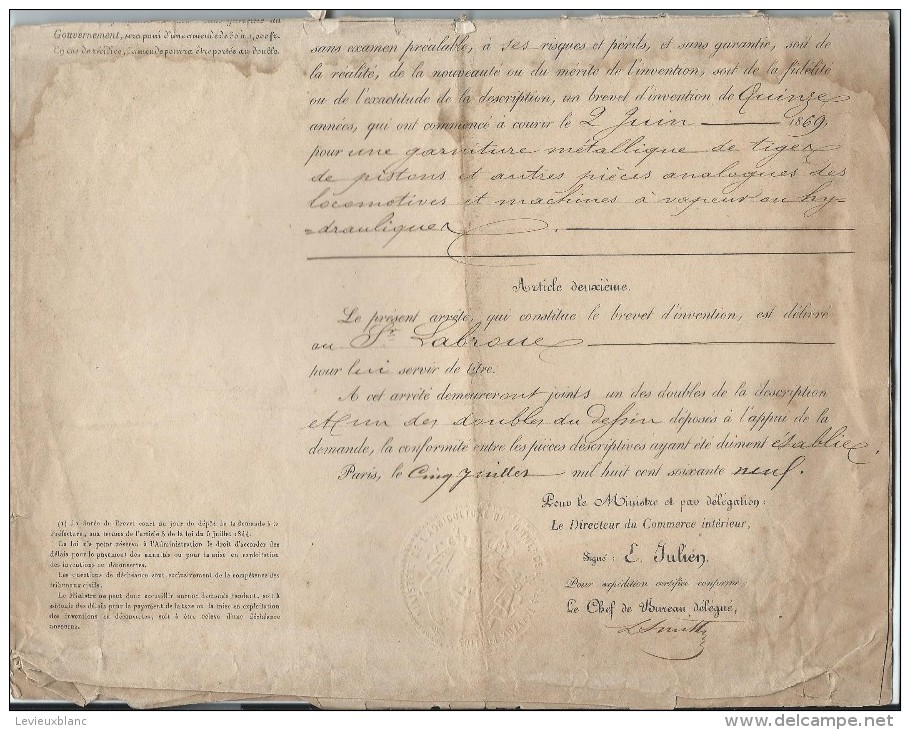 Gouvernement, sera puni d'une amende de 50 à 1,000 fr.
En cas de récidive, l'amende pourra être portée au double.
sans examen préalable, à ses risques et périls, et sans garantie, soit de
la réalité, de la nouveauté ou du mérite de l'invention, soit de la fidélité
ou de l'exactitude de la description, un brevet d'invention de Quinze
années, qui ont commencé à courir le 2 Juin 1869,
pour une garniture métallique de tiges
de pistons et autres pièces analogues des
locomotives et machines à vapeur ou hy-
-drauliques.
Article deuxième.
Le présent arrêté, qui constitue le brevet d'invention, est délivré
au Sr. Labroue
pour lui servir de titre.
A cet arrêté demeureront joints un des doubles de la description
et un des doubles du dessin déposés à l'appui de la
demande, la conformité entre les pièces descriptives ayant été dûment établie.
Paris, le Cinq Juillet mil huit cent soixante neuf.
Pour le Ministre et par délégation:
Le Directeur du Commerce intérieur,
Signé: E. Julien,
Pour expédition certifiée conforme:
Le Chef de Bureau délégué,
(1) La durée du Brevet court du jour du dépôt de la demande à la
Préfecture, aux termes de l'article 8 de la loi du 5 juillet 1844.
La loi n'a point réservé à l'Administration le droit d'accorder des
délais pour le payement des annuités ou pour la mise en exploitation
des inventions ou découvertes.
Les questions de déchéance sont exclusivement de la compétence des
tribunaux civils.
Le Ministre ne peut donc accueillir aucune demande tendant, soit à
obtenir des délais pour le payement de la taxe ou la mise en exploitation
des inventions et découvertes, soit à être relevé d'une déchéance
encourue.
Levieuxblanc
delcampe.net